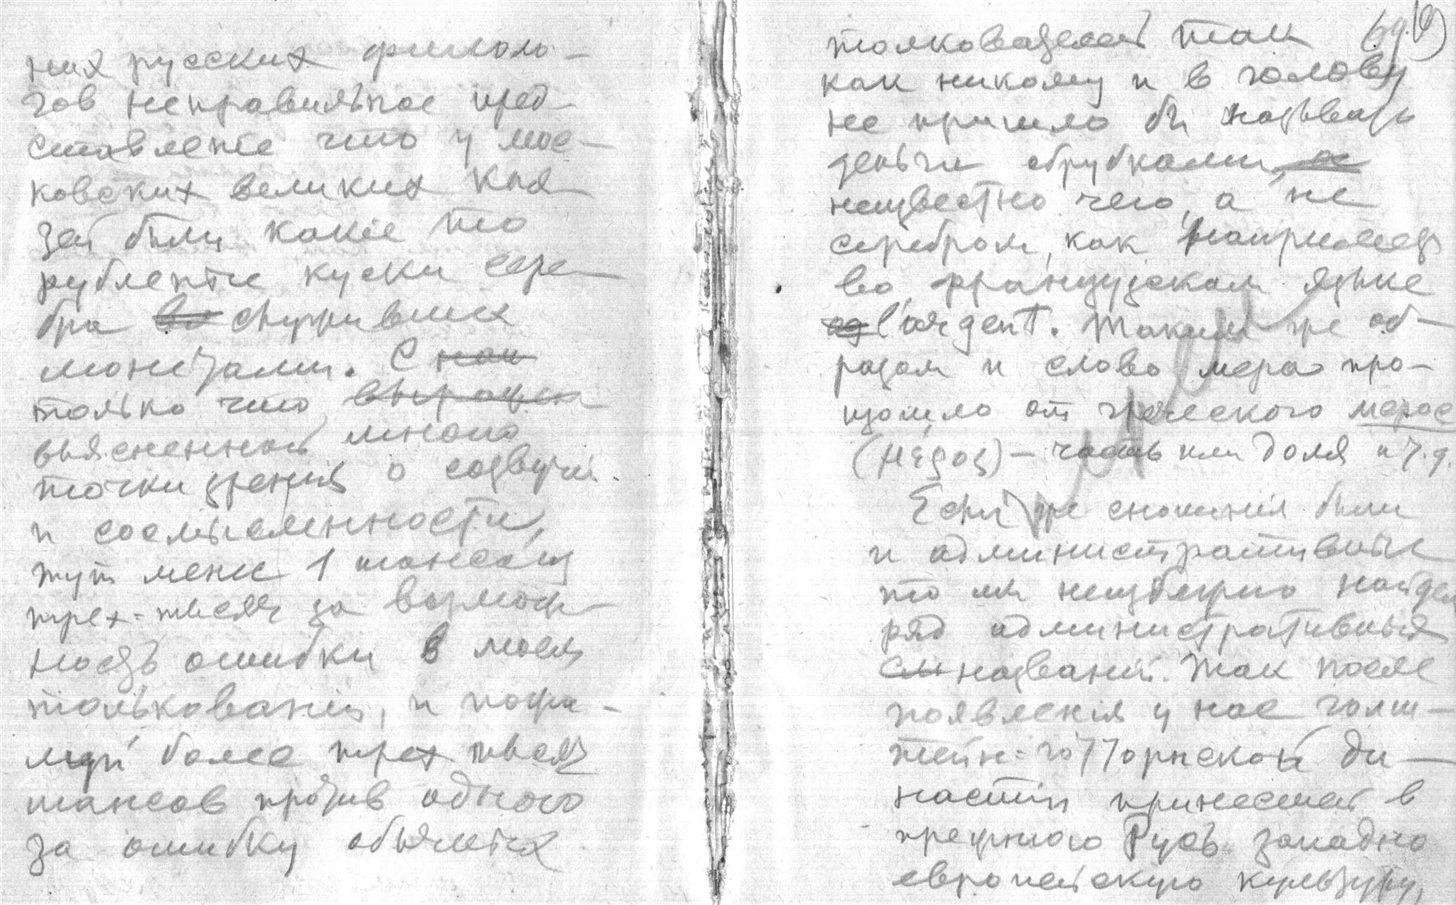 них русских филоло-
гов неправильное пред-
ставленіе что у мос-
ковских великих кня-
зей были какіе то
рубленые куски сере-
бра во служившіе
монетами. С
только что
выясненной мною
точки зрения о созвучи
и соосмысленности,
тут менее 1 шанса
трех-тысяч за возмож-
ность ошибки в моем
толькованіи, и
более трех тысяч
шансов против одного
за ошибку
69(6)
толкователей так
как никому и в голову
не пришло бы называть
деньги обрубками, а
неизвестно чего, а не
серебром, как например
во французском языке
l'argent. Таким же об-
разом и слово мера про-
изошло от греческого мерос
(μέρος) — часть или доля и т.д.
Если же сношенія были
и административные
то мы неизбежно найдем
ряд административных
названій. Так после
появленія у нас голш-
тейн-готторпской ди-
настіи принесшей в
прежнюю Русь западно
европейскую культуру,